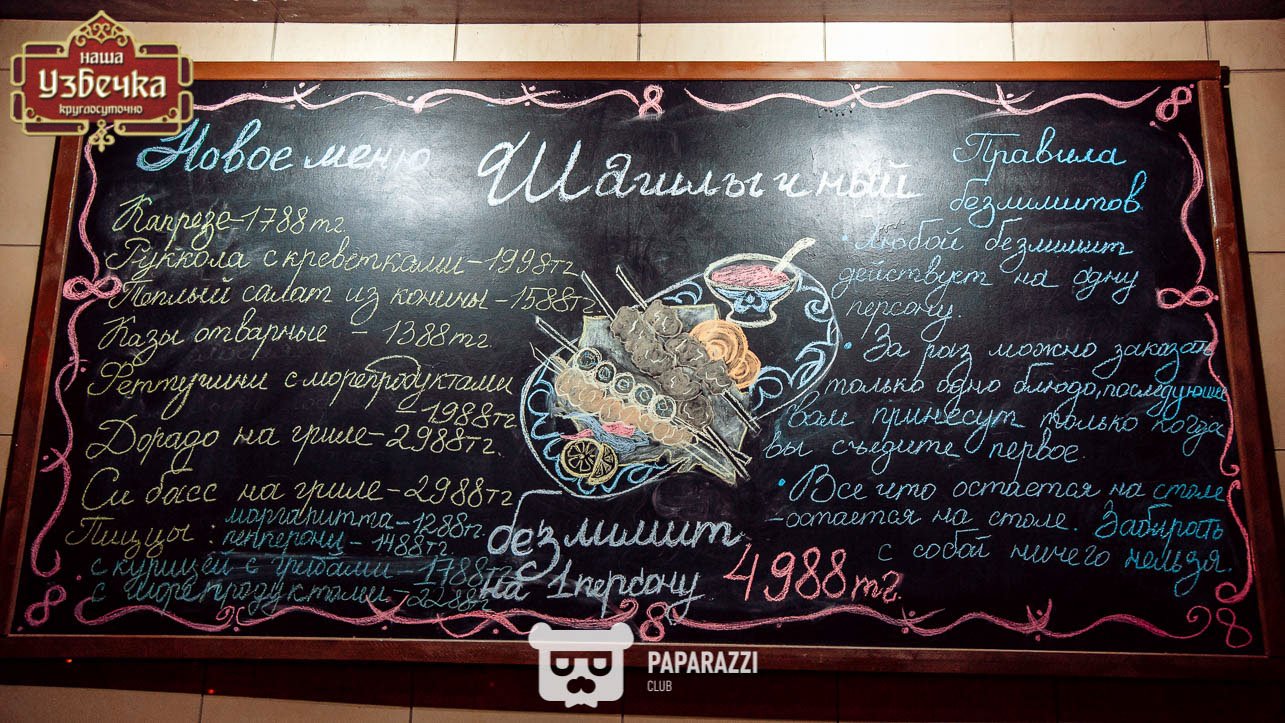 наша
Узбечка
круглосуточно
Новое меню
Капрезе-1788тг.
Руккола с креветками-1998тг
Тёплый салат из конины-1588тг.
Казы отварные - 1388тг.
Феттучини с морепродуктами
-1988тг.
Дорадо на гриле-2988тг.
Си басс на гриле-2988тг
Пиццы: маргаритта-1288тг.
пепперони-1488тг.
с курицей с грибами-1788тг
с морепродуктами-2288тг
Шашлычный
безлимит
на 1 персону 4988тг.
Правила
безлимитов.
• Любой безлимит
действует на одну
персону.
• За раз можно заказать
только одно блюдо, последующие
вам принесут только когда
вы съедите первое.
• Все что остается на столе
-остается на столе. Забирать
с собой ничего нельзя.
PAPARAZZI
CLUB